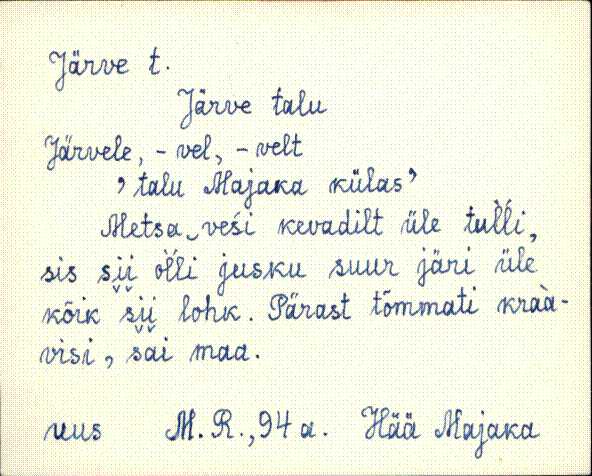 Järve t.
Järve talu
Järvele, -vel, -velt
’talu Majaka külas’
Metsa‿veśi kevadilt üle tuĺ̀ĺi,
sis sii oĺ̀ĺi jusku suur järi üle
kõik sii lohk. Pärast tõmmati kraà-
visi, sai maa.
uus M. R., 94 a. Hää Majaka